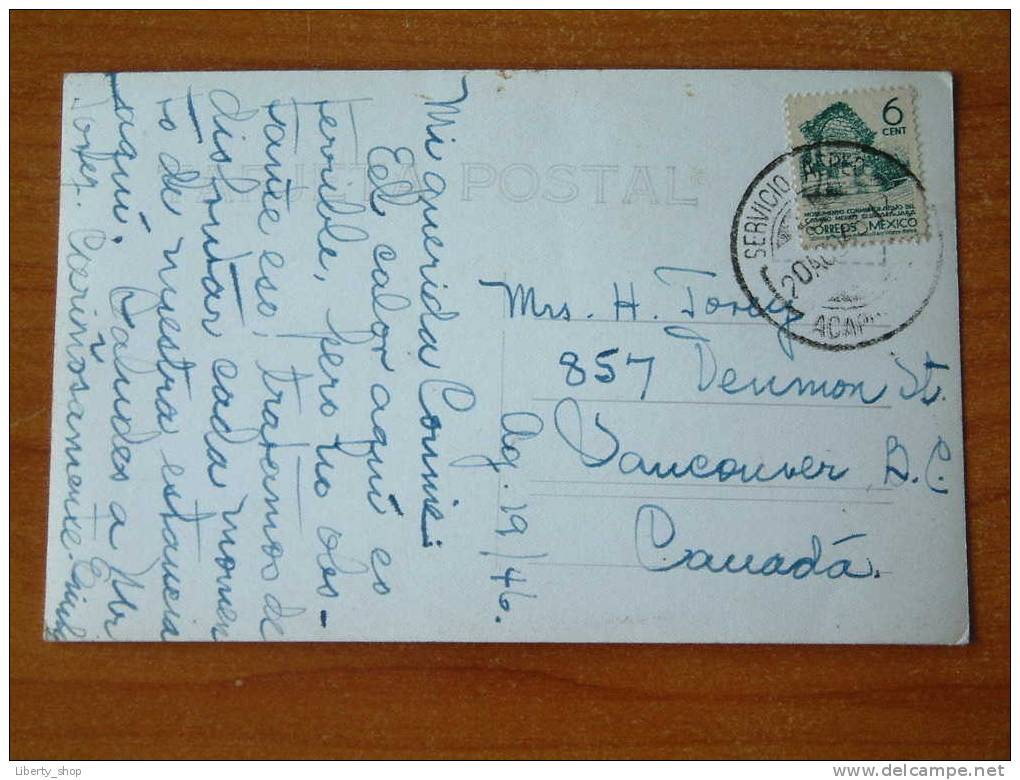 TARJETA POSTAL
Mi querida Connie:
El calor aquí es
terrible, pero no obs-
tante eso, tratamos de
disfrutar cada momen
to de nuestra estancia
aquí. Saludos a Mr
Torey. Cariñosamente.
Ag. 19/46.
Mrs. H. Torey
857 Denmon St.
Vancouver B.C.
Canadá.
6
CENT
MONUMENTO CONMEMORATIVO DEL
CAMINO MEXICO GUADALAJARA
CORREOS MÉXICO
SERVICIO AEREO
20 AGO
ACAP
Liberty_shop
delcampe.net